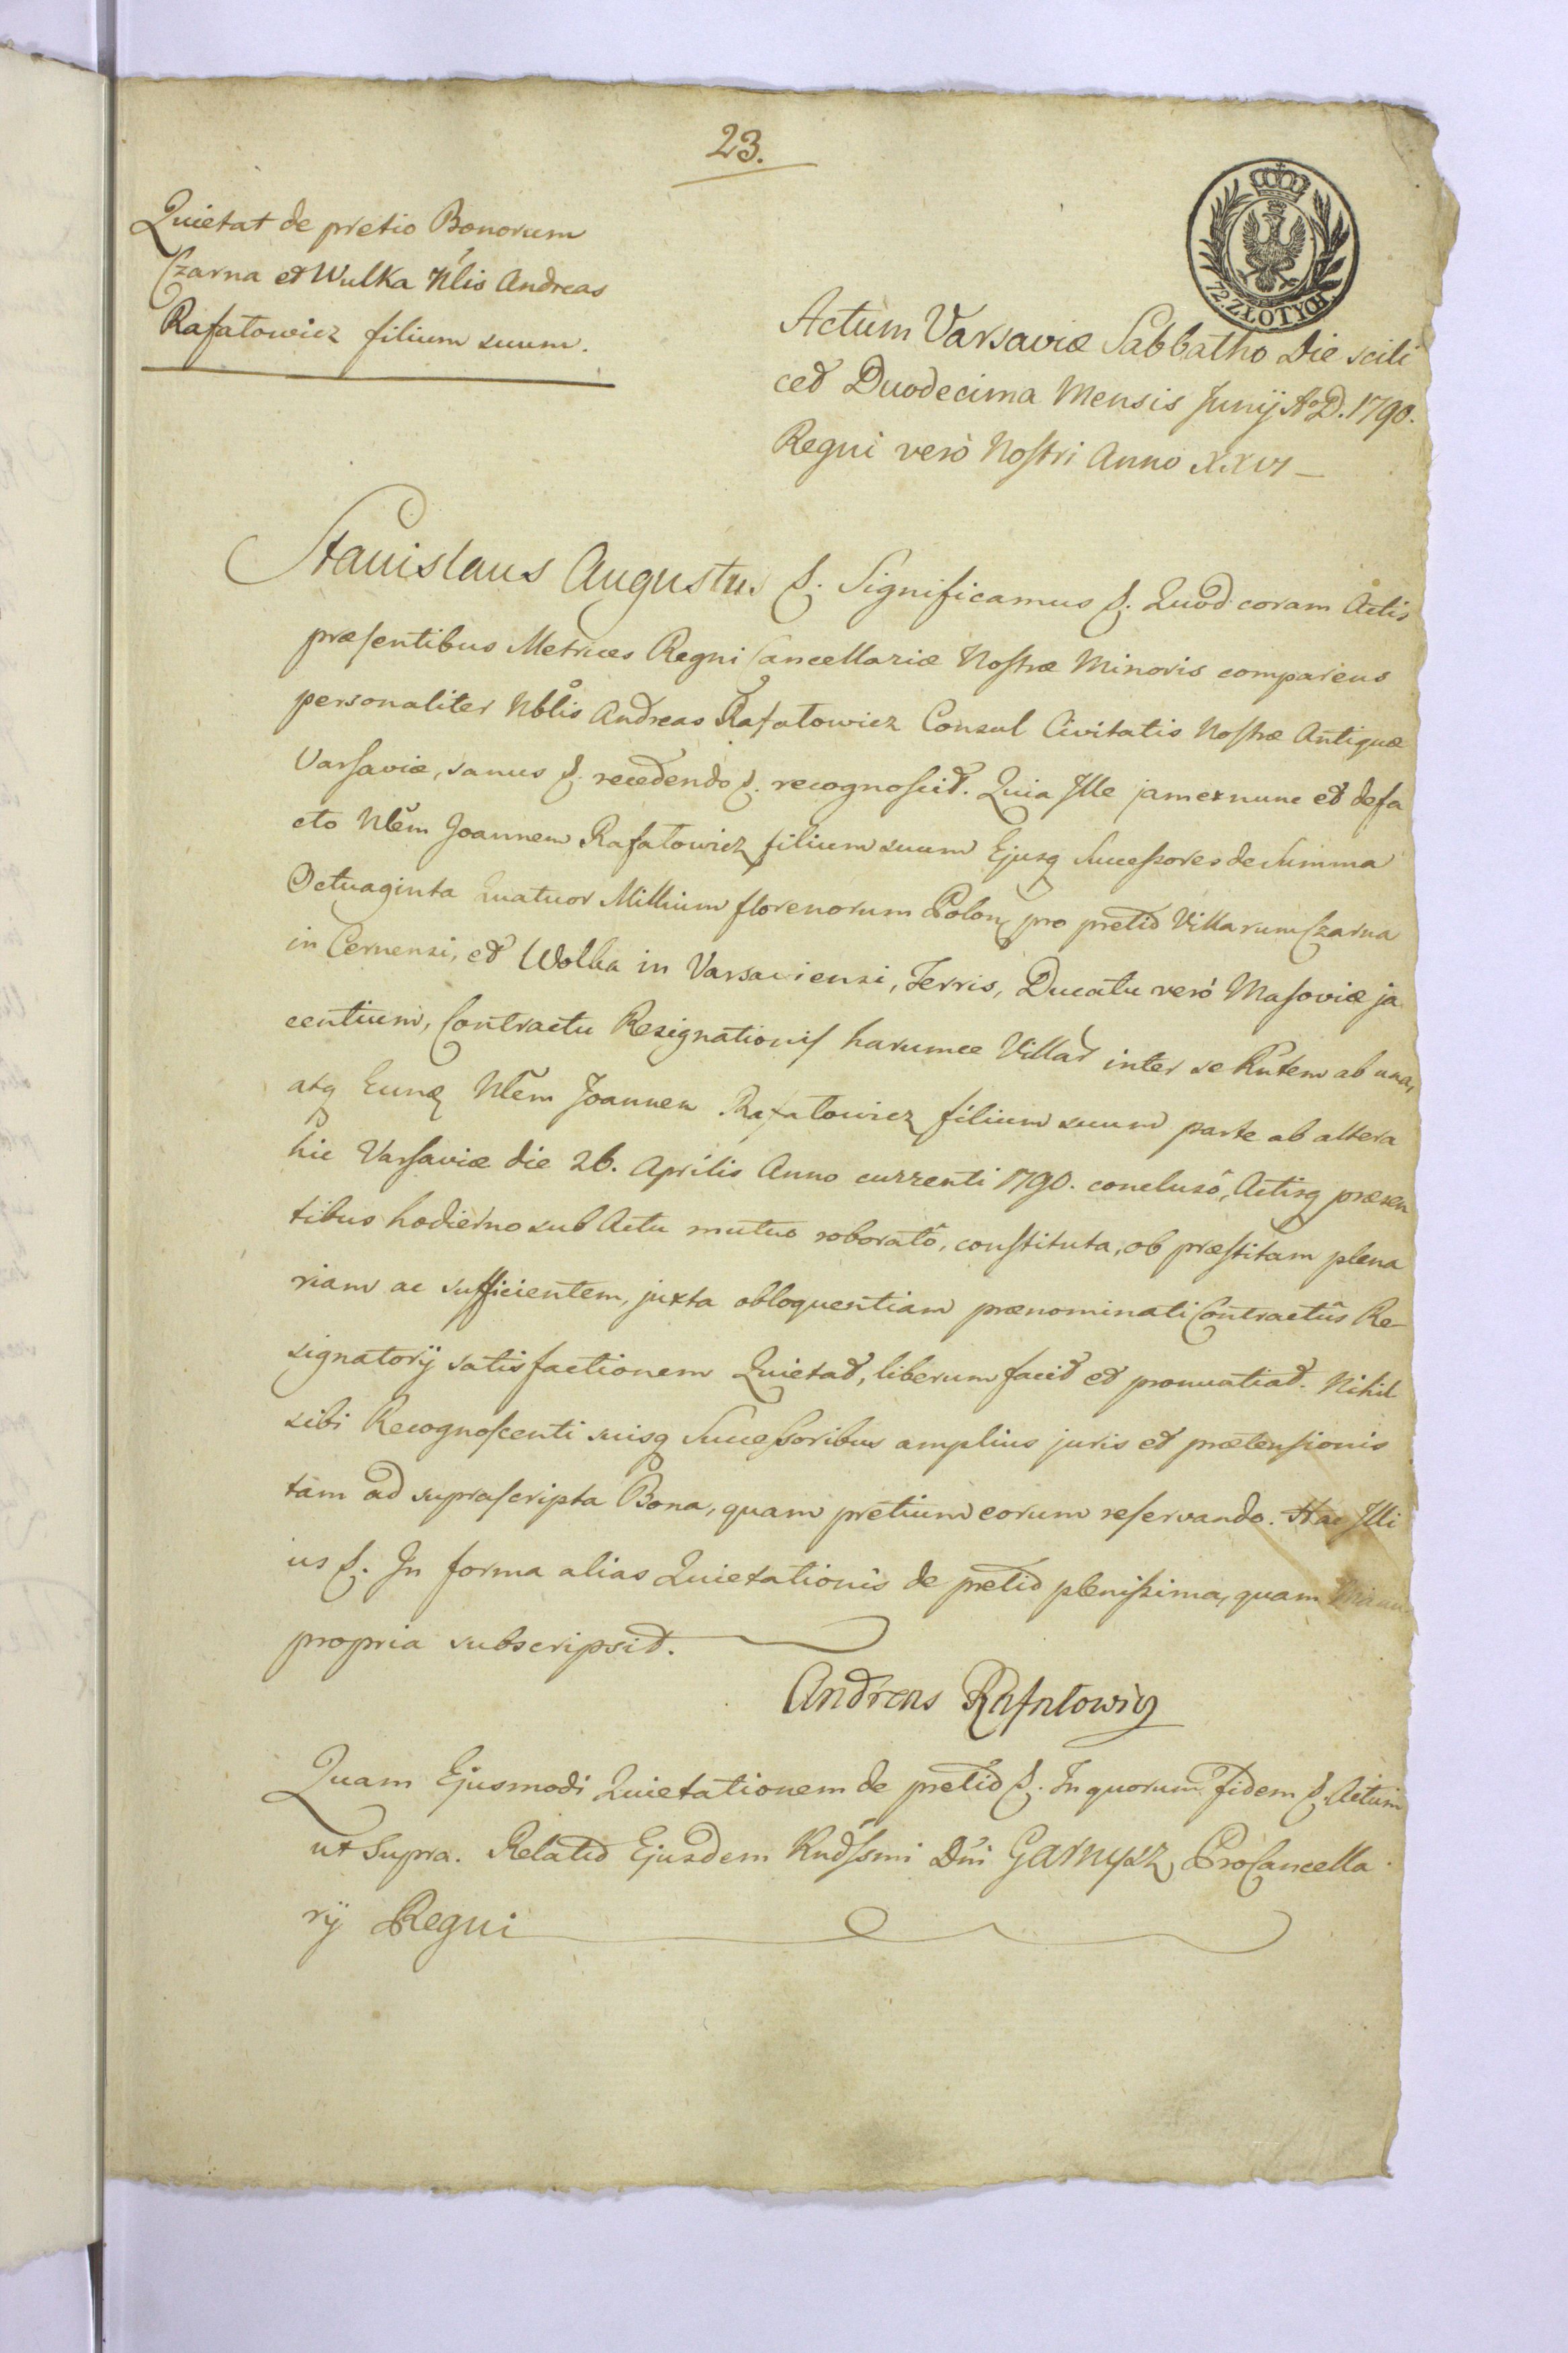 23.
Quietat de pretio Bonorum
Czarna et Wulka Nlis Andreas
Rafałowicz filium suum.
72. ZŁOTYCH
Actum Varsaviæ Sabbatho Die scili
cet Duodecima Mensis Junij AoD. 1790.
Regni verò Nostri Anno XXVI
Stanislaus Augustus &. Significamus &. Quod coram Actis
præsentibus Metrices Regni Cancellariæ Nostræ Minoris comparens
personaliter Nblis Andreas Rafałowicz Consul Civitatis Nostræ Antiquæ
Varsaviæ, sanus &. recedendo &. recognoscit. Quia Ille jam ex nunc et defa
cto Nlem Joannem Rafałowicz filium suum Ejusq Successores de Summa
Octuaginta Quatuor Millium florenorum Polon, pro pretio Villarum Czarna
in Cernensi, et Wolka in Varsaviensi, Terris, Ducatu verò Masoviæ ja
centium, Contractu Resignationis harumce Villar inter se Rntem ab una,
atq Eunq Nlem Joannem Rafałowicz filium suum parte ab altera
hic Varsaviæ die 26. Aprilis Anno currenti 1790. conclusô, Actisq præsen
tibus hodierno sub Actu mutuo roboratô, constituta, ob præstitam plena
riam ac sufficientem, juxta obloquentiam prænominati Contractûs Re-
signatorij satisfactionem Quietat, liberum facit et pronuntiat. Nihil
sibi Recognoscenti suisq Successoribus amplius juris et prætensionis
tàm ad suprascripta Bona, quam pretium eorum reservando. Hac Illi
us &. In forma alias Quietationis de pretio plenissima, quam Manu
propria subscripsit.
Andreas Rafałowicz
Quam Ejusmodi Quietationem de pretio &. In quorum fidem &. Actum
ut Supra. Relatio Ejusdem Rndssmi Dni Garnysz ProCancella
rij Regni